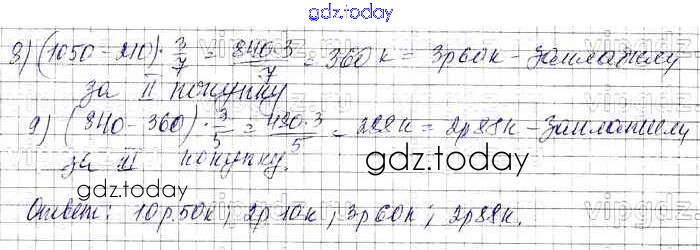 gdz.today
8) (1050 - 210) · 3/7 = 840·3/7 = 360 к = 3р 60к - заплатили
за II покупку
9) (840 - 360) · 3/5 = 480·3/5 = 288 к = 2р 88к - заплатили
за III покупку.
gdz.today
gdz.today
Ответ: 10 р. 50к; 2р 10к; 3р 60к; 2р 88к.